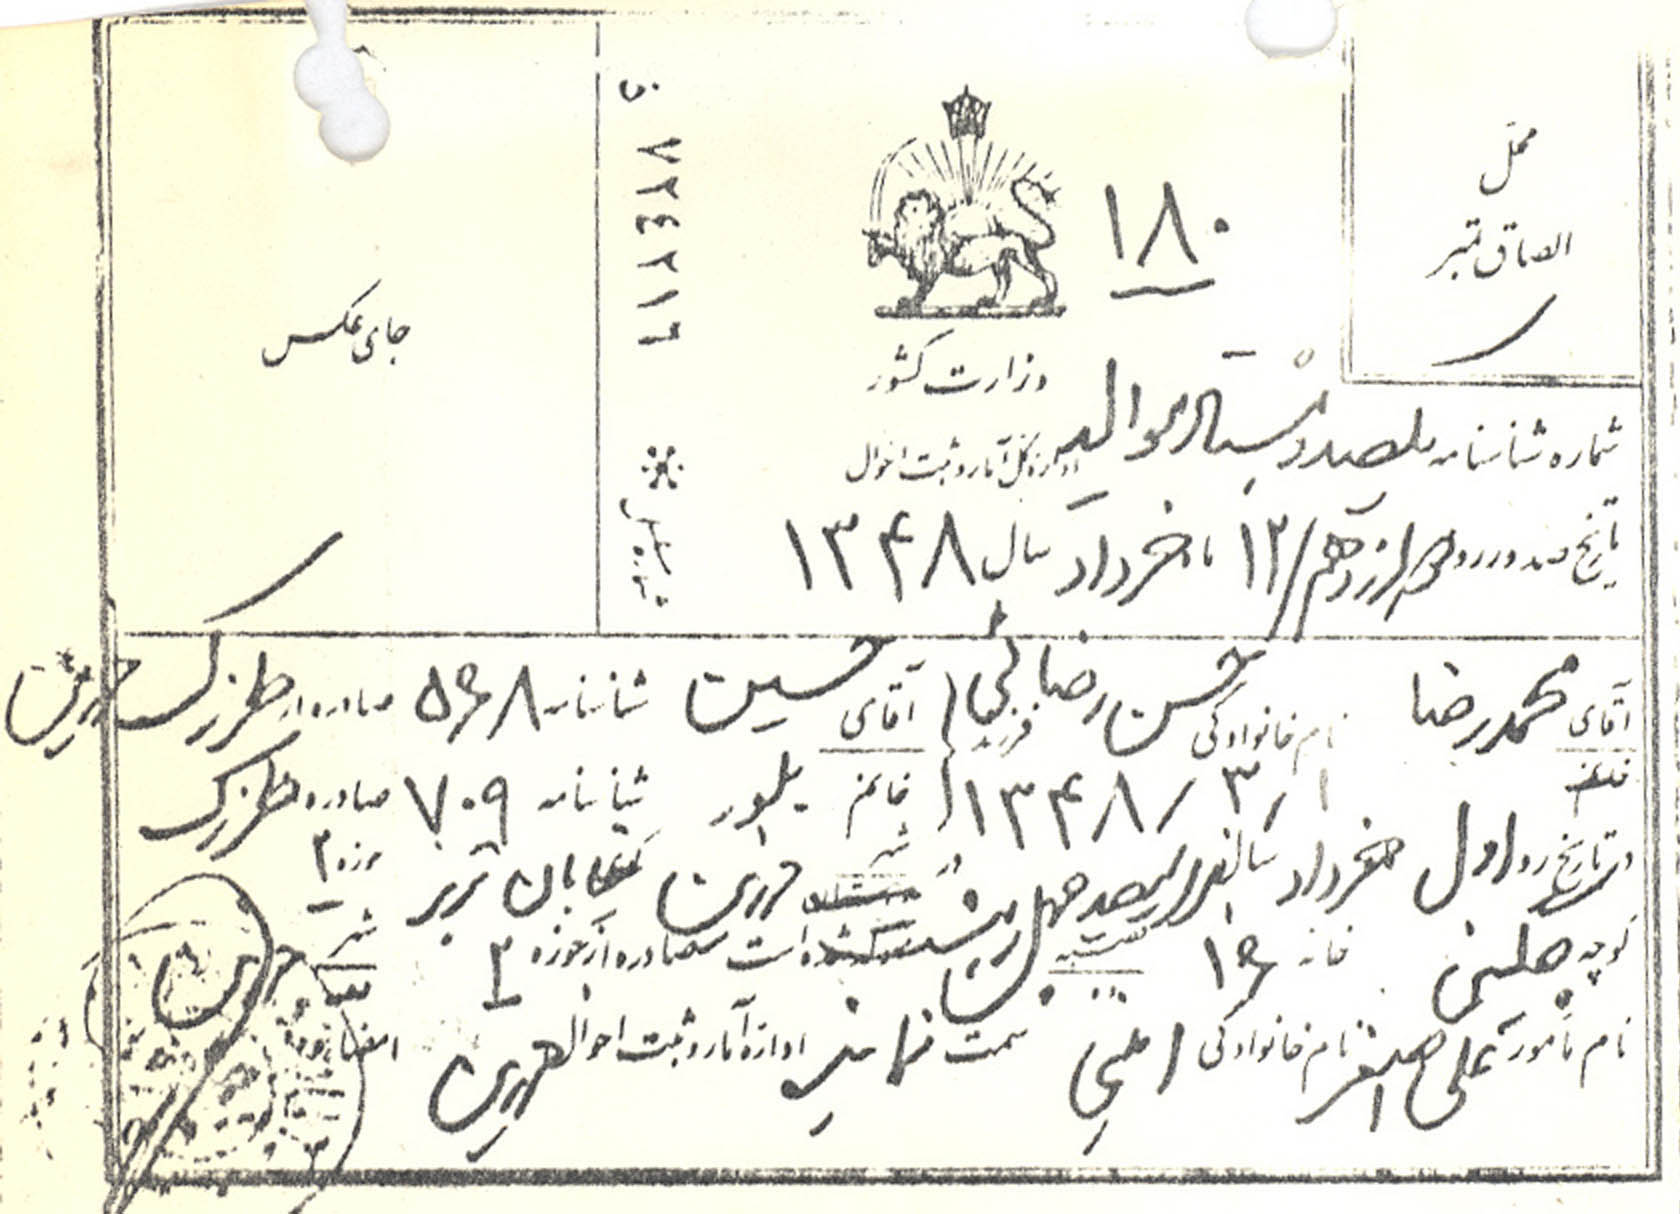 محل
الصاق تمبر
۱۸۰
ف ۷۲٤۲۱٦
جای عکس
وزارت کشور
اداره کل آمار و ثبت احوال
شماره شناسنامه یکصد و هشتاد موالید
تاریخ صدور روز دوازدهم / ۱۲ ماه خرداد سال ۱۳۴۸
آقای محمدرضا نام خانوادگی حسن رضائی فرزند آقای حسین شناسنامه ۵۶۸ صادره از طزرک قزوین
خانم ۱۳۴۸/۳/۱ خانم بلور شناسنامه ۷۰۹ صادره طزرک
در تاریخ روز اول خرداد سال هزار و سیصد و چهل و هشت در شهر قزوین خیابان تبریز حوزه ۲
کوچه خانه ۱۶ است صادره از حوزه ۲ شهر قزوین
نام مأمور علی اصغر نام خانوادگی امینی سمت نماینده اداره آمار و ثبت احوال قزوین امضاء